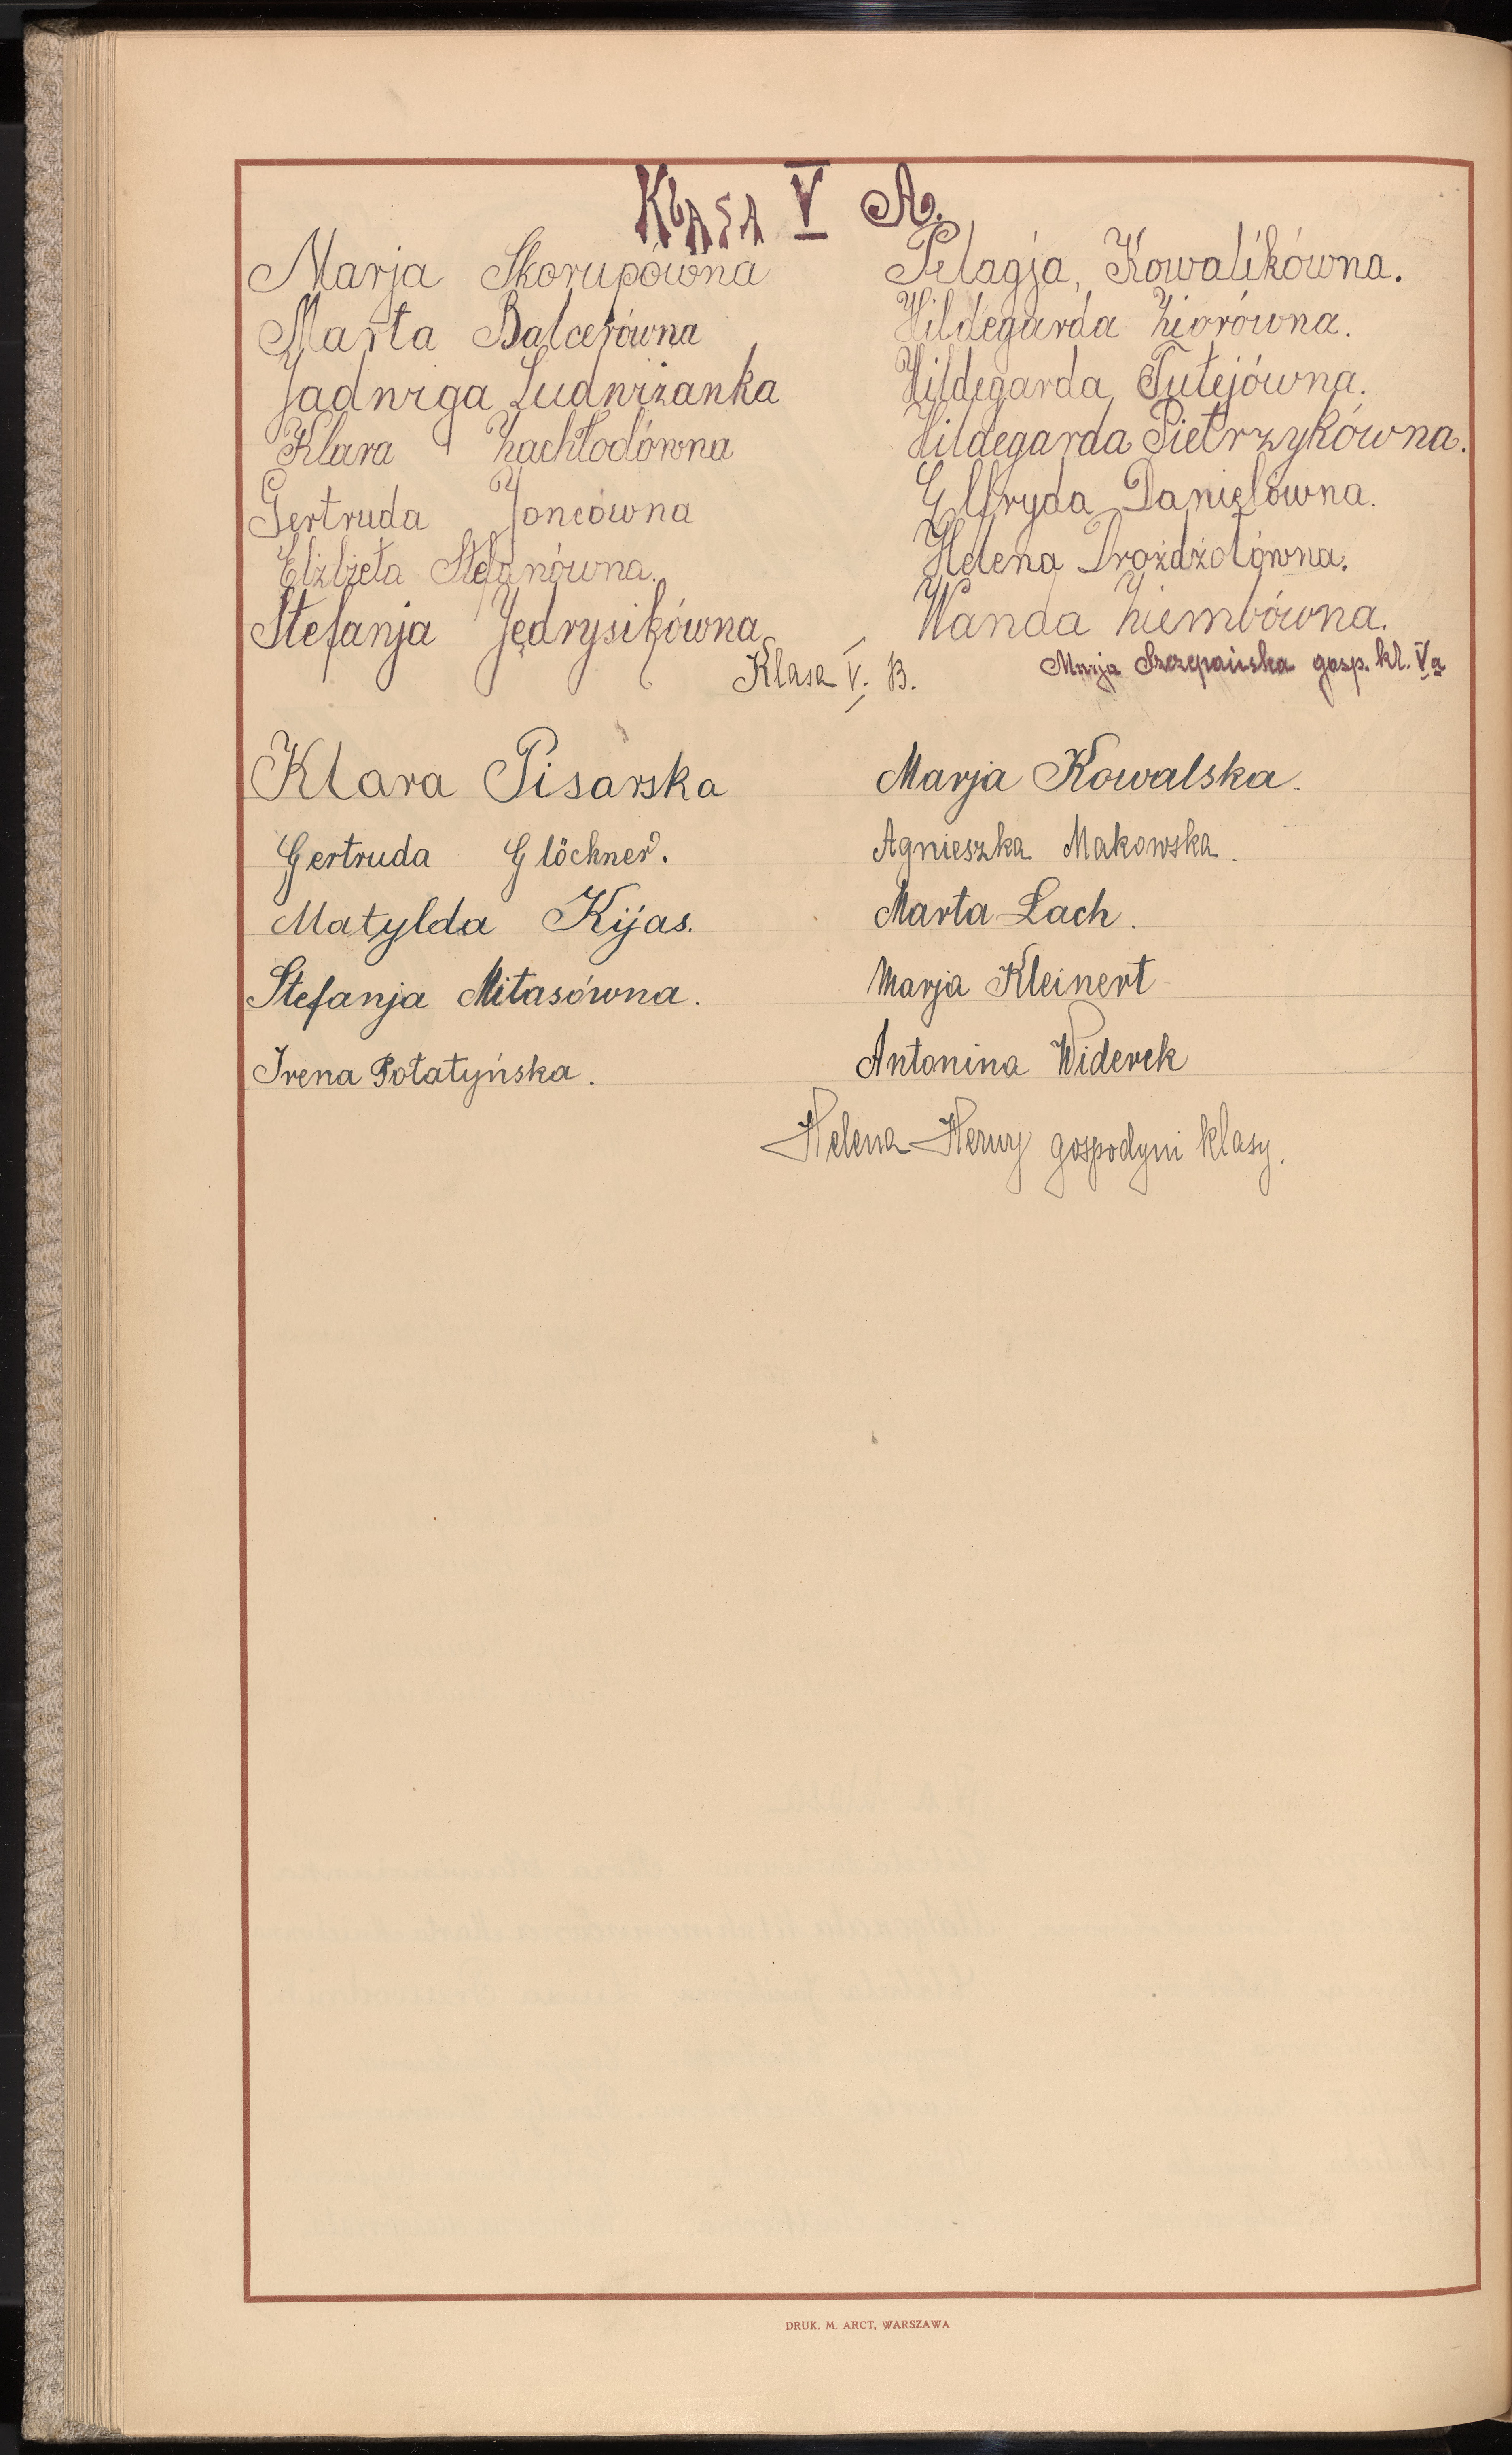 Klasa V A.
Marja Skorupówna
Marta Balcerówna
Jadwiga Ludwiżanka
Klara Zachłodówna
Gertruda Joncówna
Elżbieta Stefanówna.
Stefanja Jędrysikówna
Pelagja Kowalikówna.
Hildegarda Ziorówna.
Hildegarda Tutejówna.
Hildegarda Pietrzykówna.
Elfryda Danielówna.
Helena Drożdżolówna.
Wanda Ziembówna.
Marja Szczepańska gosp. kl. Va
Klasa V. B.
Klara Pisarska
Gertruda Glöckner.
Matylda Kijas.
Stefanja Mitasówna.
Irena Potatyńska.
Marja Kowalska.
Agnieszka Makowska.
Marta Lach.
Marja Kleinert
Antonina Widerek
Helena gospodyni klasy.
DRUK. M. ARCT, WARSZAWA